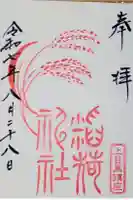 奉拝
稲荷神社
令和七年八月二十八日